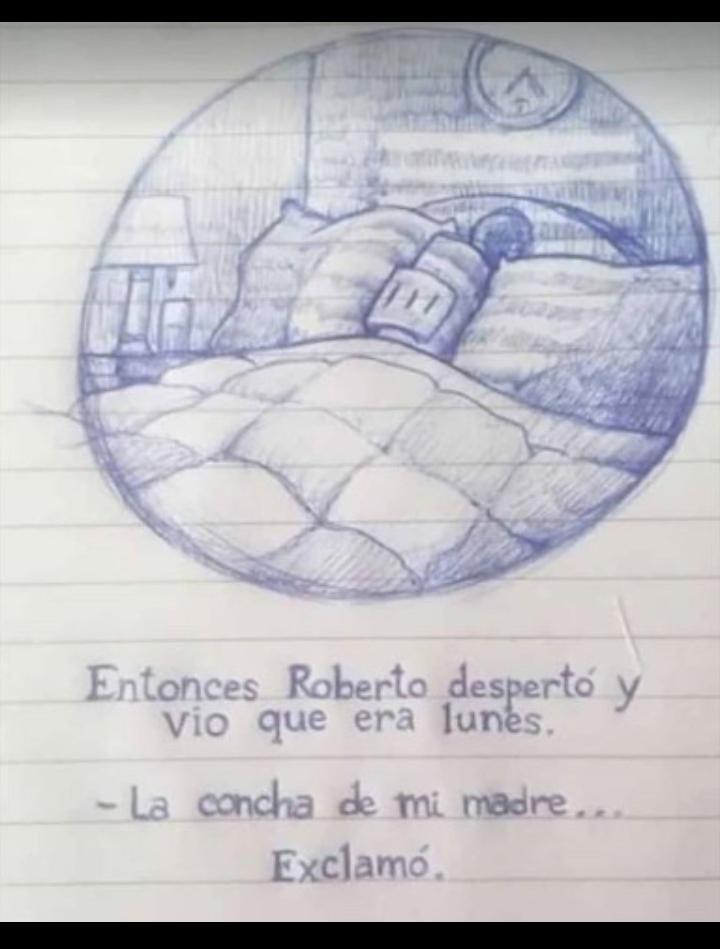 Entonces Roberto despertó y
vio que era lunes.
- La concha de mi madre...
Exclamó.